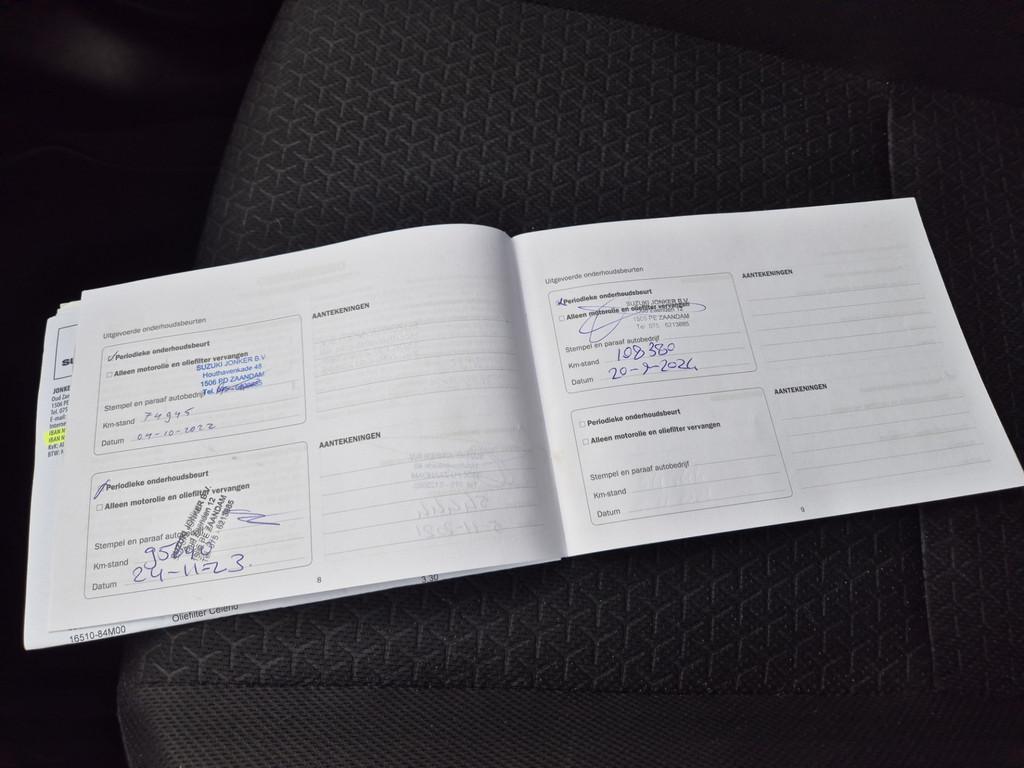 Uitgevoerde onderhoudsbeurten
Periodieke onderhoudsbeurt
Alleen motorolie en oliefilter vervangen
SUZUKI JONKER B.V.
Houthavenkade 48
1506 PD ZAANDAM
Tel.
Stempel en paraaf autobedrijf
Km-stand 74945
Datum 04-10-2022
AANTEKENINGEN
Periodieke onderhoudsbeurt
Alleen motorolie en oliefilter vervangen
SUZUKI JONKER B.V.
Oud Zaenden 12
1506 PE ZAANDAM
Tel. 075 - 6213885
Stempel en paraaf autobedrijf
Km-stand
Datum 24-11-23.
AANTEKENINGEN
8
3.30
Uitgevoerde onderhoudsbeurten
Periodieke onderhoudsbeurt
Alleen motorolie en oliefilter vervangen
SUZUKI JONKER B.V.
Oud Zaenden 12
1506 PE ZAANDAM
Tel. 075 - 6213885
Stempel en paraaf autobedrijf
Km-stand 108380
Datum 20-9-2024
AANTEKENINGEN
Periodieke onderhoudsbeurt
Alleen motorolie en oliefilter vervangen
Stempel en paraaf autobedrijf
Km-stand
Datum
AANTEKENINGEN
9
JONKE
Oud Zae
1506 PE
Tel. 075
E-mail:
Interne
IBAN N
IBAN N
BTW:
16510-84M00
Oliefilter Celerio